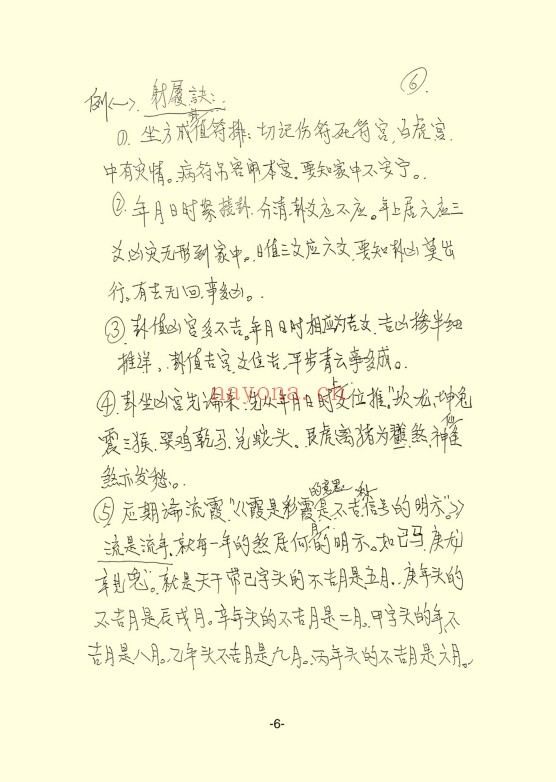 ⑥
例<一>. 射履诀:
①. 坐方成值符排; 切记伤符死符宫, 白虎宫.
中有灾情. 病符吊客闹本宫. 要知家中不安宁.
② 年月日时 挂卦. 分清卦爻应不应. 年上居六应三
爻凶灾无形到家中. 日值三爻应六爻. 要知卦凶莫出
行. 有去无回事多凶.
③ 卦值凶宫多不吉. 年月日时相应为吉爻. 吉凶掺半细
推详, 卦值吉宫爻位吉. 平步青云事多成.
nayona.cn
④ 卦坐凶宫先论来. 先从年月日时上爻位推. "坎龙, 坤兔
震三猴. 巽鸡乾马. 兑蛇头. 艮虎离猪为 煞. 神仙
煞亦发愁.
⑤ 后期论流霞. "《霞是彩霞的意思 是不吉信号的明示"》
流是流年. 就每一年的煞居何月的明示. 如己马. 庚龙
辛见兔". 就是天干带己字头的不吉月是五月. 庚年头的
不吉月是辰戌月. 辛年头的不吉月是二月. 甲字头的年不
吉月是八月. 乙年头不吉月是九月. 丙年头的不吉月是六月.
-6-